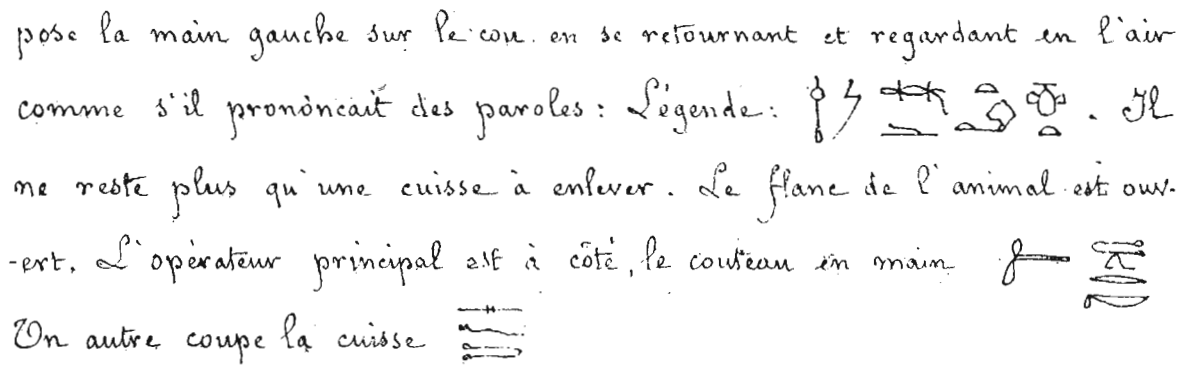 pose la main gauche sur le cou en se retournant et regardant en l'air
comme s'il prononçait des paroles : Légende : . Il
ne reste plus qu'une cuisse à enlever. Le flanc de l'animal est ouv-
-ert. L'opérateur principal est à côté, le couteau en main
Un autre coupe la cuisse